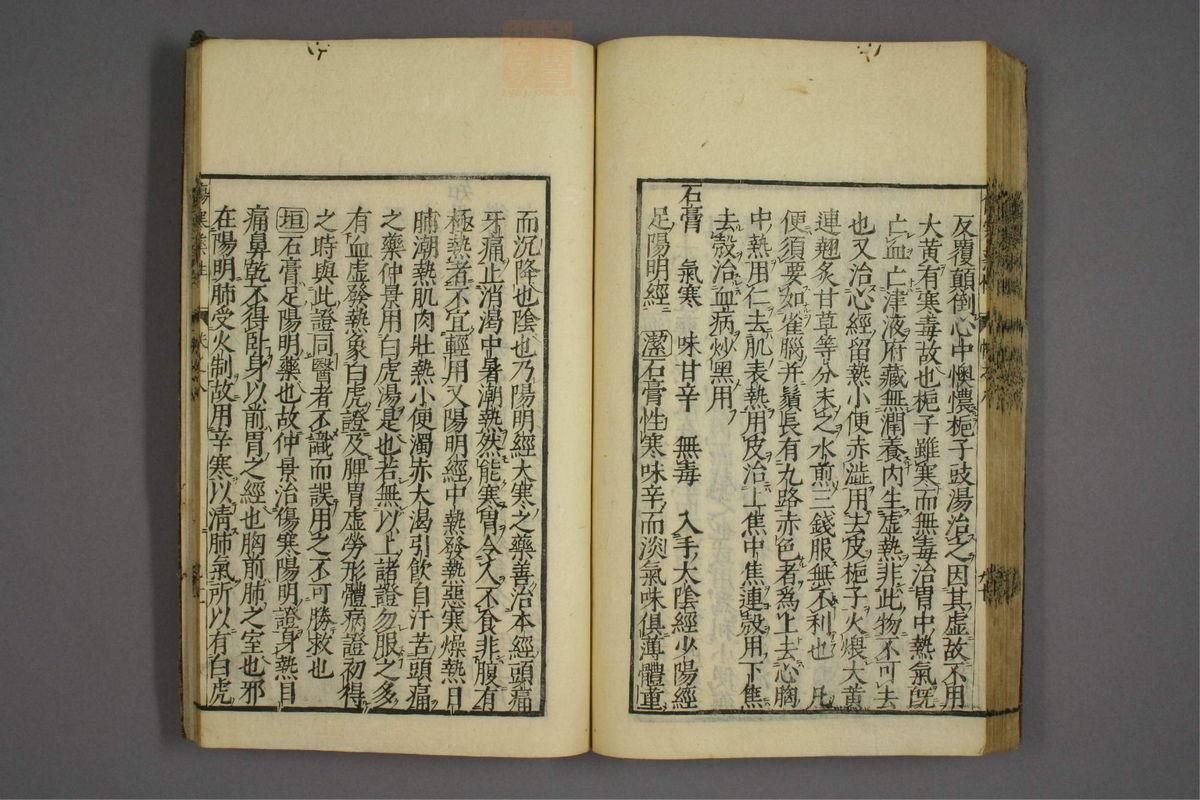 反覆顛倒心中懊憹梔子豉湯治之因其虛故不用
大黃有寒毒故也梔子雖寒而無毒治胃中熱氣既
亡血亡津液府藏無潤養內生虛熱非此物不可去
也又治心經留熱小便赤澁用去皮梔子火煨大黃
連翹炙甘草等分末之水煎三錢服無不利也 凡
便須要如雀腦并鬚長有九路赤色者為上去心胸
中熱用仁去肌表熱用皮治上焦中焦連殼用下焦
去殼治血病炒黑用
石膏 氣寒 味甘辛 無毒 入手太陰經少陽經
足陽明經 潔石膏性寒味辛而淡氣味俱薄體重
而沉降也陰也乃陽明經大寒之藥善治本經頭痛
牙痛止消渴中暑潮熱然能寒胃令人不食非腹有
極熱者不宜輕用又陽明經中熱發熱惡寒燥熱日
晡潮熱肌肉壯熱小便濁赤大渴引飲自汗苦頭痛
之藥仲景用白虎湯是也若無以上諸證勿服之多
有血虛發熱象白虎證及脾胃虛勞形體病證初得
之時與此證同醫者不識而誤用之不可勝救也
垣石膏足陽明藥也故仲景治傷寒陽明證身熱目
痛鼻乾不得臥身以前胃之經也胸前肺之室也邪
在陽明肺受火制故用辛寒以清肺氣所以有白虎
傷寒藥性